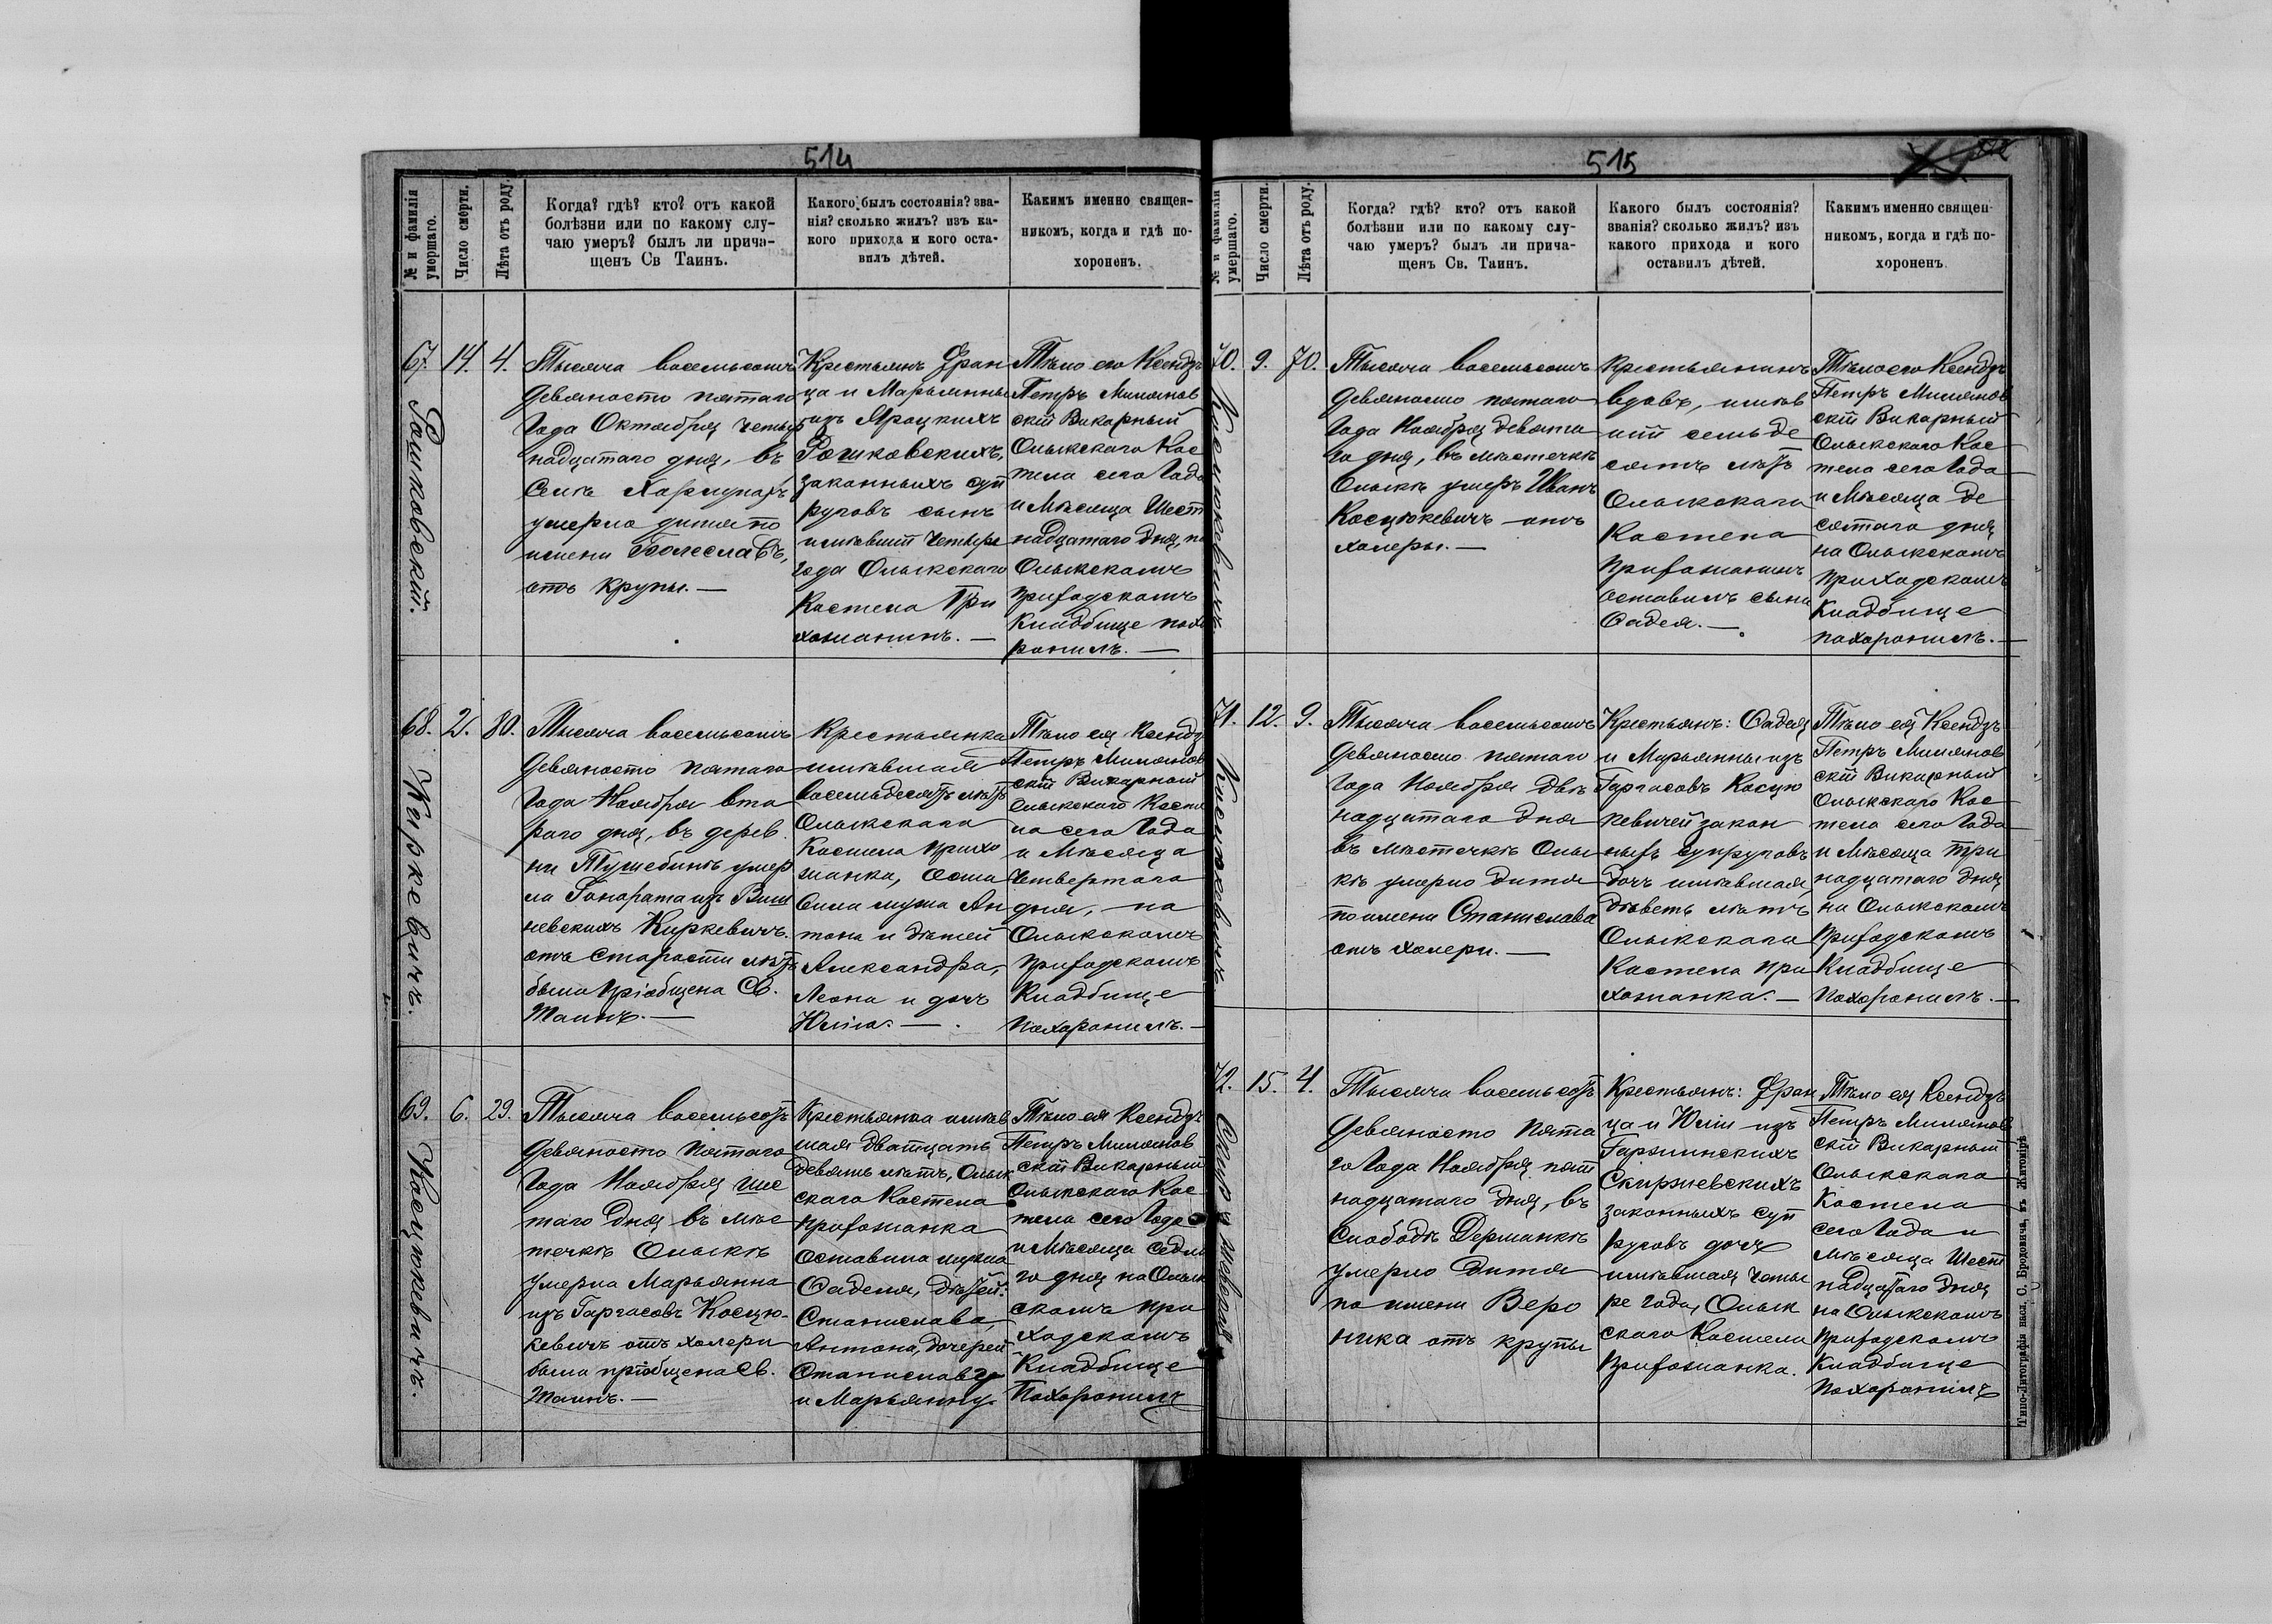 514
№ и фамилія умершаго.
Число смерти.
Лѣта отъ роду.
Когда? гдѣ? кто? отъ какой
болѣзни или по какому слу-
чаю умеръ? былъ ли прича-
щенъ Св Таинъ.
Какого былъ состоянія? зва-
нія? сколько жилъ? изъ ка-
кого прихода и кого оста-
вилъ дѣтей.
Какимъ именно священ-
никомъ, когда и гдѣ по-
хороненъ.
67.
Рошковскій.
14.
4.
Тысяча восемьсотъ
девяносто пятаго
Года Октября четыр
надцатаго дня, въ
Селѣ
умерло дитя по
имени Болеславъ,
отъ крупы. —
Крестьянъ Фран
ца и Марьянны
изъ Яроцкихъ
Рошковскихъ,
законныхъ суп
руговъ сынъ
имѣвшій четыре
года Олыкскаго
Костела При
хожанинъ. —
Тѣло его Ксендзъ
Петръ Милянов
скій Викарный
Олыкскаго Кос
тела сего Года
и Мѣсяца Шест
надцатаго дня, на
Олыкскомъ
приходскомъ
Кладбище похо
ронилъ. —
68.
Киркевичъ.
2.
80.
Тысяча восемьсотъ
девяносто пятаго
Года Ноября вто
раго дня, въ дерев
ни Тушебинѣ умер
ла Гонората изъ Виш
невскихъ Киркевичъ.
отъ старости лѣтъ
была пріобщена Св.
Таинъ. —
Крестьянка
имѣвшая
восемьдесятъ лѣтъ
Олыкскаго
Костела прихо
жанка, оста
вила мужа Ан
тона и дѣтей
Александра,
Леона и дочь
Юлію. —
Тѣло ея Ксендзъ
Петръ Милянов
скій Викарный
Олыкскаго Косте
ла сего Года
и Мѣсяца
Четвертаго
дня, на
Олыкскомъ
приходскомъ
Кладбище
похоронилъ. —
69.
Косцюкевичъ.
6.
29.
Тысяча восемьсотъ
девяносто пятаго
Года Ноября шес
таго дня въ мѣс
течкѣ Олыкѣ
умерла Марьянна
изъ Гаргасовъ Косцю-
кевичъ отъ холери
была пріобщена Св.
Таинъ. —
Крестьянка имѣв
шая двадцать
девять лѣтъ, Олык
скаго Костела
прихожанка
оставила мужа
Фадея, дѣтей:
Станислава,
Антона, дочерей
Станиславу
и Марьянну.
Тѣло ея Ксендзъ
Петръ Милянов
скій Викарный
Олыкскаго Кос
тела сего Года
и Мѣсяца седма
го дня на Олык
скомъ при
ходскомъ
Кладбище
Похоронилъ
515
№ и фамилія умершаго.
Число смерти.
Лѣта отъ роду.
Когда? гдѣ? кто? отъ какой
болѣзни или по какому слу-
чаю умеръ? былъ ли прича-
щенъ Св. Таинъ.
Какого былъ состоянія?
званія? сколько жилъ? изъ
какого прихода и кого
оставилъ дѣтей.
Какимъ именно священ-
никомъ, когда и гдѣ по-
хороненъ
70.
Косцюкевичъ.
9.
70.
Тысяча восемьсотъ
девяносто пятаго
Года Ноября девята
го дня, въ мѣстечкѣ
Олыкѣ умеръ Иванъ
Косцюкевичъ отъ
холеры. —
Крестьянинъ
вдовъ, имѣв
шій семьде
сятъ лѣтъ
Олыкскаго
Костела
прихожанинъ
оставилъ сына
Фадея. —
Тѣло его Ксендзъ
Петръ Милянов
скій Викарный
Олыкскаго Кос
тела сего Года
и Мѣсяца де
сятаго дня
на Олыкскомъ
приходскомъ
Кладбище
похоронилъ. —
71.
Косцюкевичъ.
12.
9.
Тысяча восемьсотъ
девяносто пятаго
Года Ноября двѣ
надцатаго дня
въ мѣстечкѣ Олы
кѣ умерло дитя
по имени Станислава
отъ холери. —
Крестьянъ: Фадея
и Марьянны изъ
Гаргасовъ Косцю
кевичей закон
ныхъ супруговъ
дочь имѣвшая
девять лѣтъ
Олыкскаго
Костела при
хожанка. —
Тѣло ея Ксендзъ
Петръ Милянов
скій Викарный
Олыкскаго Кос
тела сего Года
и Мѣсяца три
надцатаго дня
на Олыкскомъ
приходскомъ
Кладбище
Похоронилъ. —
72.
15.
4.
Тысяча восемьсотъ
девяносто пята
го Года Ноября пят
надцатаго дня, въ
Слободѣ Держанкѣ
умерло дитя
по имени Веро
ника отъ крупы
Крестьянъ: Фран
ца и Юліи изъ
Скиржевскихъ
законныхъ суп
руговъ дочь
имѣвшая четы
ре года, Олык
скаго Костела
прихожанка.
Тѣло ея Ксендзъ
Петръ Милянов
скій Викарный
Олыкскаго
Костела
сего Года и
мѣсяца Шест
надцатаго дня
на Олыкскомъ
приходскомъ
Кладбище
Похоронилъ
Типо-Литографія насл. С. Бродовича, въ Житомірѣ